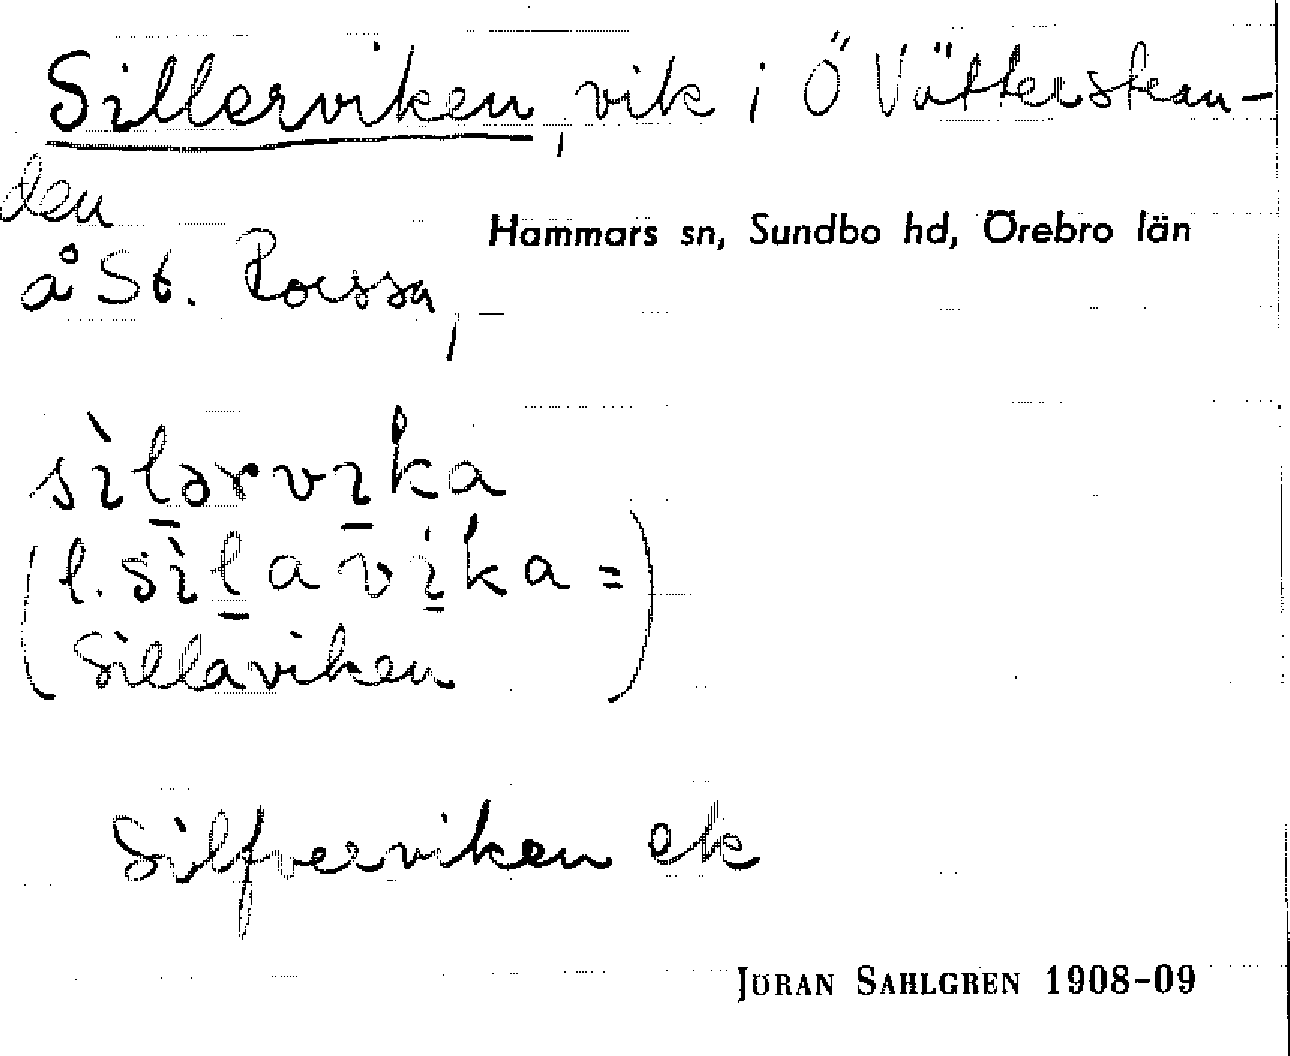 Sillerviken, vik i Ö Vätterstran-
den
Hammars sn, Sundbo hd, Örebro län
å St. Forssa,
sìlərvika
(l. sìlavika =
Sillaviken)
Silfverviken ek
JÖRAN SAHLGREN 1908-09